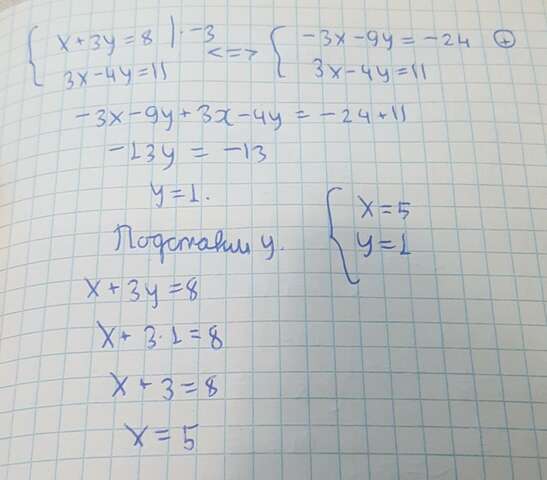 { x+3y=8 |·-3 <=> { -3x-9y=-24 ⊕
3x-4y=11 3x-4y=11
-3x-9y+3x-4y=-24+11
-13y=-13
y=1.
Подставим y.
{ x=5
y=1
x+3y=8
x+3·1=8
x+3=8
x=5